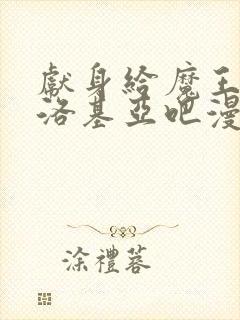 獻身給魔王
洛基亞吧漫
涂禮蓉